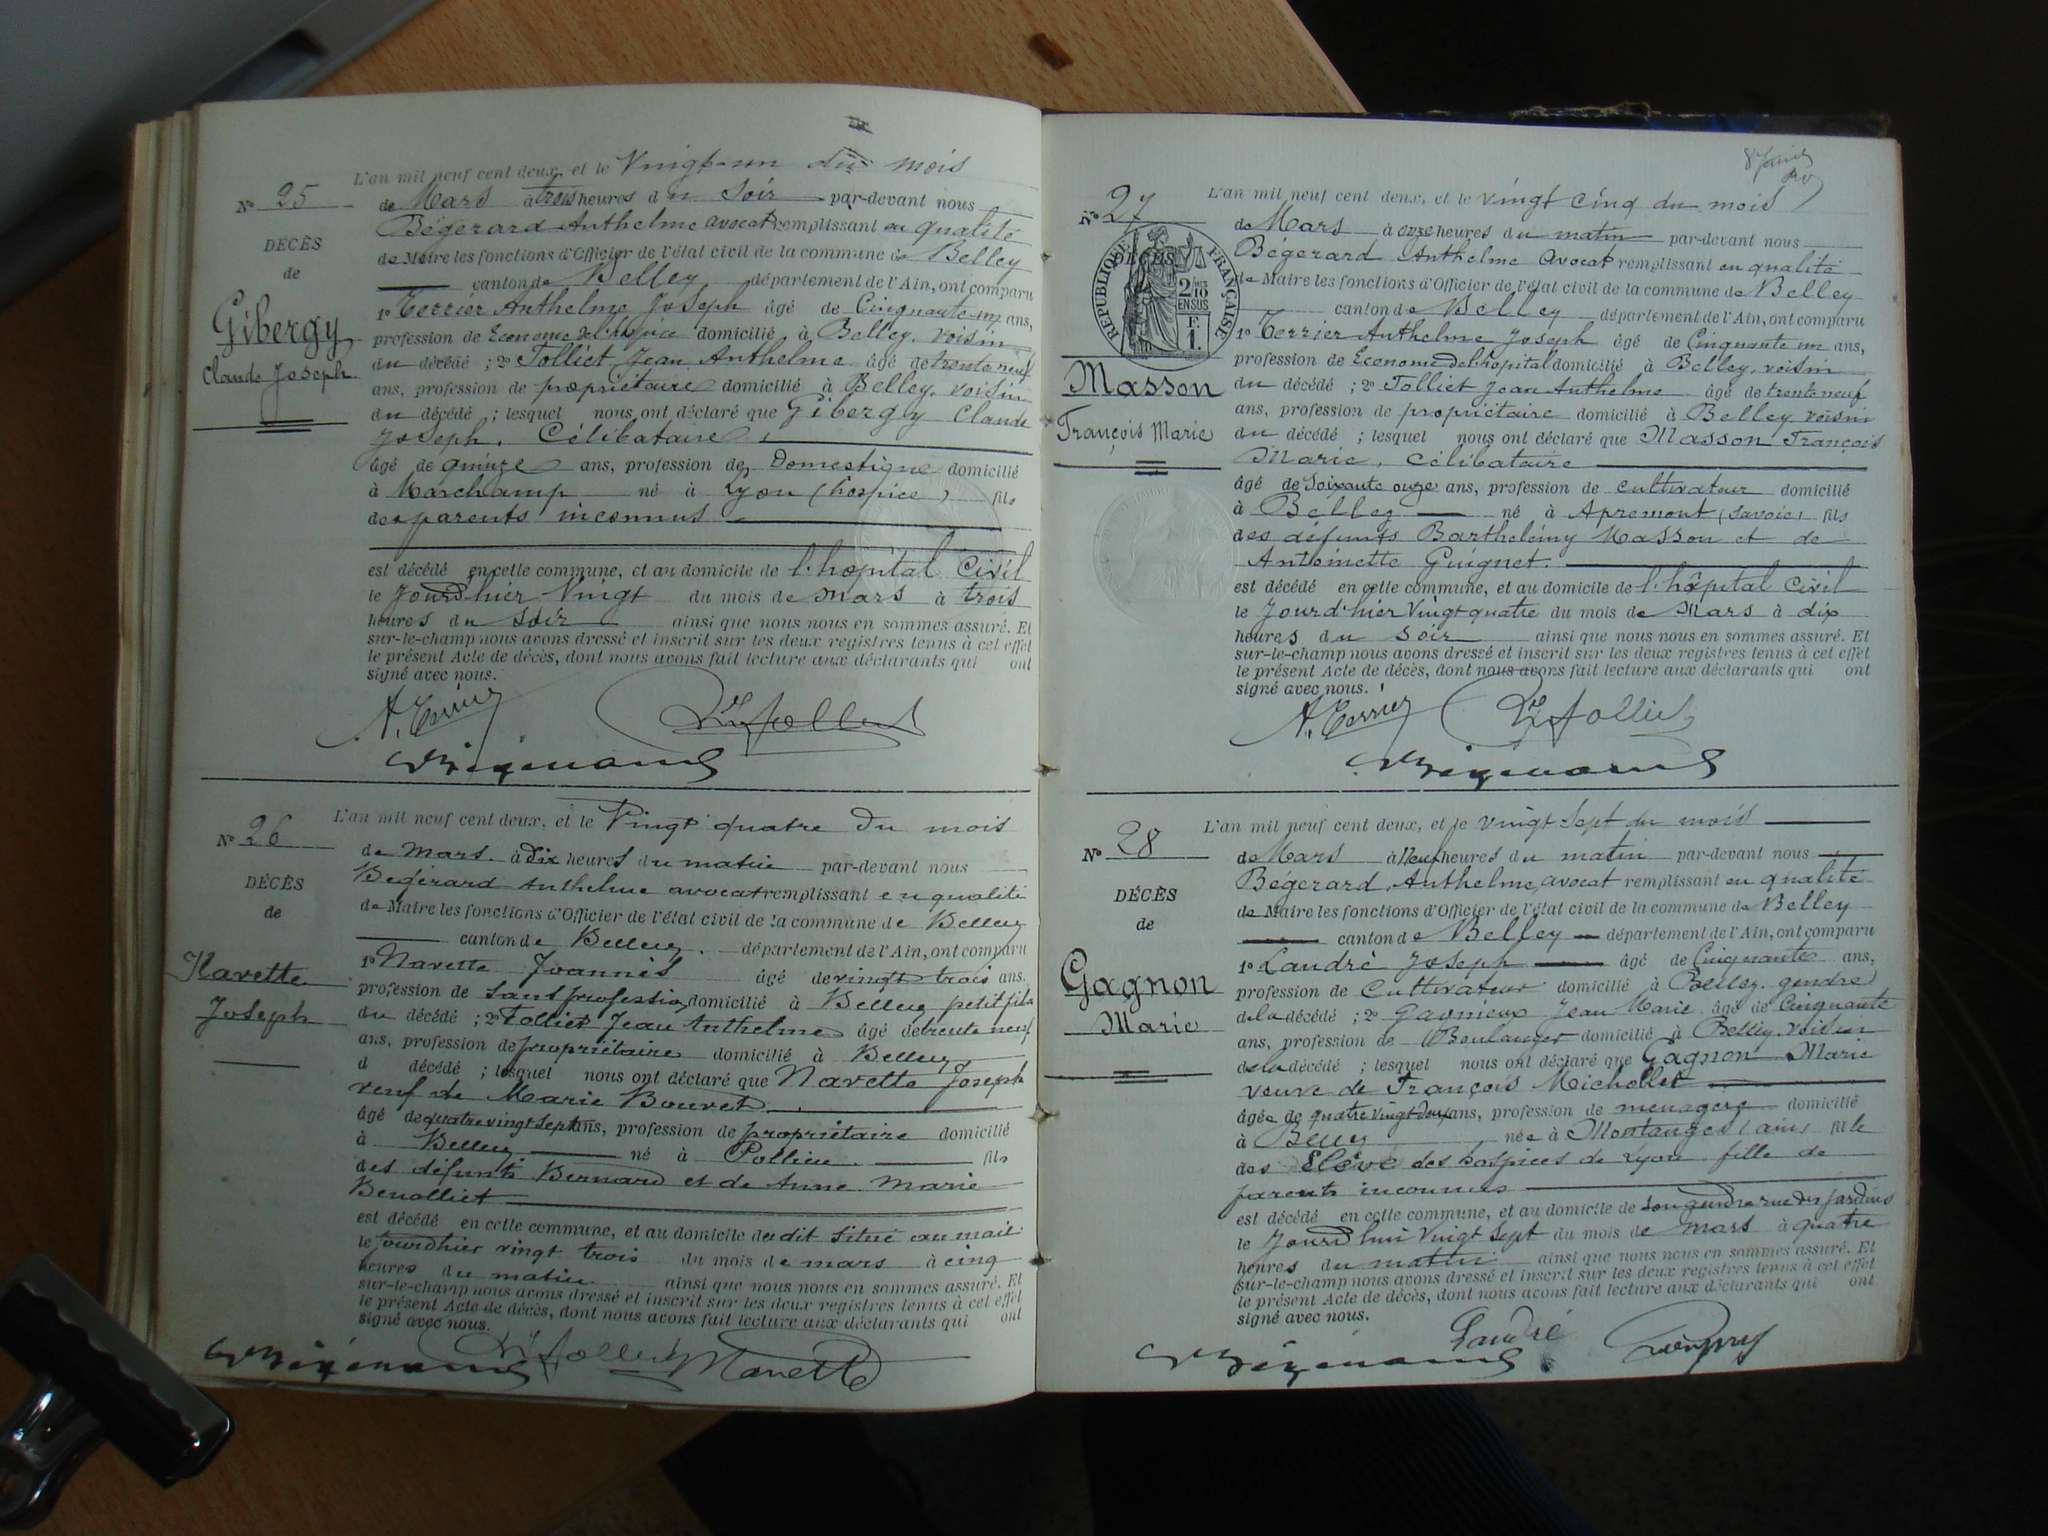 L'an mil neuf cent deux, et le Vingt-un du mois
N° 25
de Mars à trois heures du soir par-devant nous
Bégerard Anthelme avocat remplissant en qualité
DÉCÈS
de Maire les fonctions d'Officier de l'état civil de la commune de Belley
de
canton de Belley département de l'Ain, ont comparu
Gibergy
1° Terrier Anthelme Joseph âgé de Cinquante-un ans,
profession de Econome de l'hospice domicilié à Belley, voisin
Claude Joseph
du décédé ; 2° Tolliet Jean Anthelme âgé de trente neuf
ans, profession de propriétaire domicilié à Belley, voisin
du décédé ; lesquel nous ont déclaré que Gibergy Claude
Joseph, Célibataire
âgé de quinze ans, profession de Domestique domicilié
à Marchamp né à Lyon (hospice) fils
des parents inconnus
est décédé en cette commune, et au domicile de l'hôpital Civil
le Jourd'hier Vingt du mois de Mars à trois
heures du soir ainsi que nous nous en sommes assuré. Et
sur-le-champ nous avons dressé et inscrit sur les deux registres tenus à cet effet
le présent Acte de décès, dont nous avons fait lecture aux déclarants qui ont
signé avec nous.
A. Terrier Tolliet
L'an mil neuf cent deux, et le Vingt quatre du mois
N° 26
de Mars à Dix heures du matin par-devant nous
Bégerard Anthelme avocat remplissant en qualité
DÉCÈS
de Maire les fonctions d'Officier de l'état civil de la commune de Belley
de
canton de Belley département de l'Ain, ont comparu
Navette
1° Navette Joannès âgé de vingt trois ans.
profession de sans profession domicilié à Belley petit fils
Joseph
du décédé ; 2° Tolliet Jean Anthelme âgé de trente neuf
ans, profession de propriétaire domicilié à Belley
d décédé ; lesquel nous ont déclaré que Navette Joseph
veuf de Marie Bouvet
âgé de quatre vingt sept ans, profession de propriétaire domicilié
à Belley né à Pollieu fils
des défunts Bernard et de Anne Marie
Benolliet
est décédé en cette commune, et au domicile du dit situé au mail
le jourd'hier vingt trois du mois de mars à cinq
heures du matin ainsi que nous nous en sommes assuré. Et
sur-le-champ nous avons dressé et inscrit sur les deux registres tenus à cet effet
le présent Acte de décès, dont nous avons fait lecture aux déclarants qui ont
signé avec nous.
Tolliet Navette
L'an mil neuf cent deux, et le vingt cinq du mois
N° 27
de Mars à onze heures du matin par-devant nous
Bégerard Anthelme avocat remplissant en qualité
DÉCÈS
RÉPUBLIQUE FRANÇAISE
2/10 EN SUS
F. 1.
de Maire les fonctions d'Officier de l'état civil de la commune de Belley
canton de Belley département de l'Ain, ont comparu
1° Terrier Anthelme Joseph âgé de Cinquante un ans,
profession de Econome de l'hôpital domicilié à Belley, voisin
Masson
du décédé ; 2° Tolliet Jean Anthelme âgé de trente neuf
ans, profession de propriétaire domicilié à Belley voisin
François Marie
du décédé ; lesquel nous ont déclaré que Masson François
Marie, Célibataire
âgé de soixante onze ans, profession de cultivateur domicilié
à Belley né à Apremont (Savoie) fils
des défunts Barthelémy Masson et de
Antoinette Guignet.
est décédé en cette commune, et au domicile de l'hôpital Civil
le Jourd'hier Vingt quatre du mois de Mars à dix
heures du soir ainsi que nous nous en sommes assuré. Et
sur-le-champ nous avons dressé et inscrit sur les deux registres tenus à cet effet
le présent Acte de décès, dont nous avons fait lecture aux déclarants qui ont
signé avec nous.
A. Terrier Tolliet
L'an mil neuf cent deux, et le vingt sept du mois
N° 28
de Mars à Neuf heures du matin par-devant nous
Bégerard, Anthelme, avocat remplissant en qualité
DÉCÈS
de Maire les fonctions d'Officier de l'état civil de la commune de Belley
de
canton de Belley département de l'Ain, ont comparu
Gagnon
1° Landré Joseph âgé de Cinquante ans,
profession de Cultivateur domicilié à Belley, gendre
Marie
de la décédé ; 2° Jean Marie âgé de Cinquante
ans, profession de Boulanger domicilié à Belley, voisin
de la décédé ; lesquel nous ont déclaré que Gagnon Marie
veuve de François Michollet
âgée de quatre vingt deux ans, profession de menagère domicilié
à Belley née à Montanges (ain) fille
des Elève des hospices de Lyon fille de
parents inconnus
est décédé en cette commune, et au domicile de son gendre rue des jardins
le Jourd'hui Vingt Sept du mois de mars à quatre
heures du matin ainsi que nous nous en sommes assuré. Et
sur-le-champ nous avons dressé et inscrit sur les deux registres tenus à cet effet
le présent Acte de décès, dont nous avons fait lecture aux déclarants qui ont
signé avec nous.
Landré